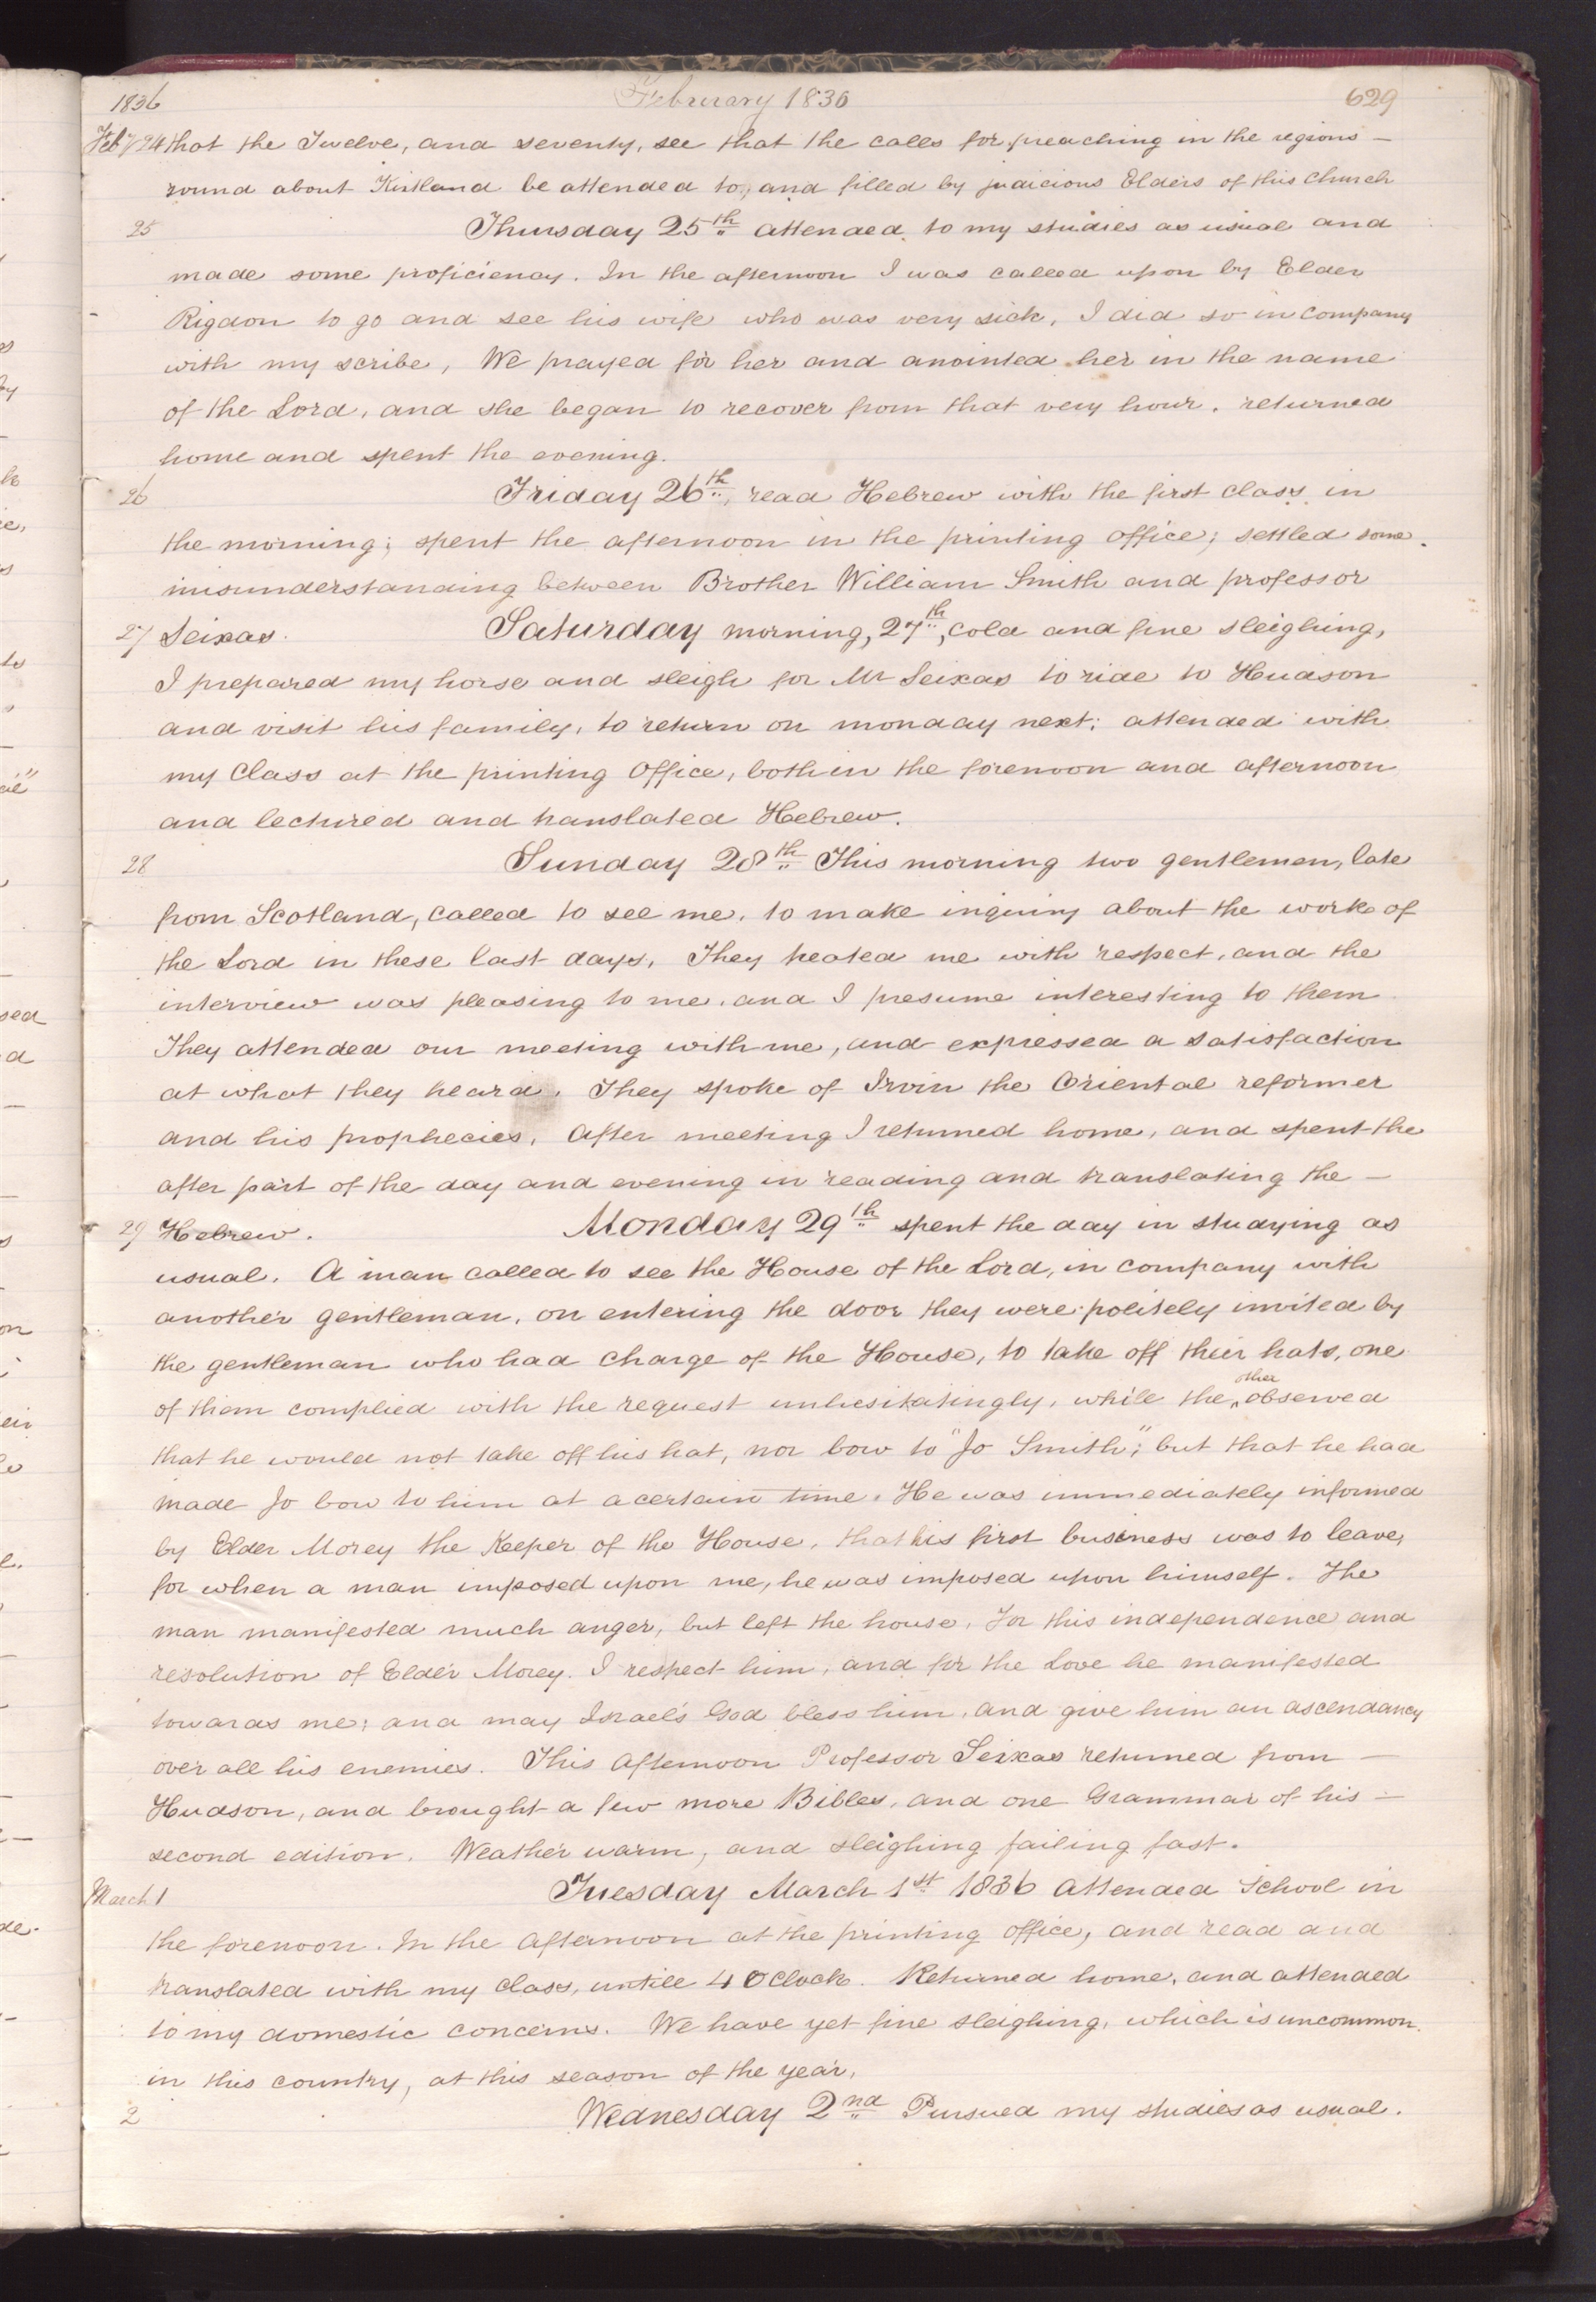 1836 February 1836 629
Feby 24 that the Twelve, and seventy, see that the calls for preaching in the regions —
round about Kirtland be attended to, and filled by judicious Elders of this church
25 Thursday 25th attended to my studies as usual and
made some proficiency. In the afternoon I was called upon by Elder
Rigdon to go and see his wife who was very sick, I did so in company
with my scribe, We prayed for her and anointed her in the name
of the Lord, and she began to recover from that very hour. returned
home and spent the evening.
26 Friday 26th, read Hebrew with the first class in
the morning; spent the afternoon in the printing office; settled some
misunderstanding between Brother William Smith and professor
27 Seixas. Saturday morning, 27th, cold and fine sleighing,
I prepared my horse and sleigh for Mr Seixas to ride to Hudson
and visit his family, to return on monday next; attended with
my Class at the printing Office, both in the forenoon and afternoon
and lectured and translated Hebrew.
28 Sunday 28th This morning two gentlemen, late
from Scotland, called to see me, to make inquiry about the work of
the Lord in these last days, They treated me with respect, and the
interview was pleasing to me, and I presume interesting to them
They attended our meeting with me, and expressed a satisfaction
at what they heard. They spoke of Irvin the Oriental reformer
and his prophecies, After meeting I returned home, and spent the
after part of the day and evening in reading and translating the —
29 Hebrew. Monday 29th spent the day in studying as
usual. A man called to see the House of the Lord, in company with
another gentleman, on entering the door they were politely invited by
the gentleman who had charge of the House, to take off their hats, one
of them complied with the request unhesitatingly, while the other observed
that he would not take off his hat, nor bow to "Jo Smith"; but that he had
made Jo bow to him at a certain time. He was immediately informed
by Elder Morey the Keeper of the House, that his first business was to leave,
for when a man imposed upon me, he was imposed upon himself. The
man manifested much anger, but left the house. For this independence and
resolution of Elder Morey. I respect him, and for the Love he manifested
towards me; and may Israel's God bless him, and give him an ascendancy
over all his enemies. This afternoon Professor Seixas returned from —
Hudson, and brought a few more Bibles, and one Grammar of his —
second edition. Weather warm, and sleighing failing fast.
March 1 Tuesday March 1st 1836 attended School in
the forenoon. In the afternoon at the printing office, and read and
translated with my class, untill 4 Oclock. Returned home, and attended
to my domestic concerns. We have yet fine sleighing, which is uncommon
in this country, at this season of the year,
2 Wednesday 2nd Pursued my studies as usual.